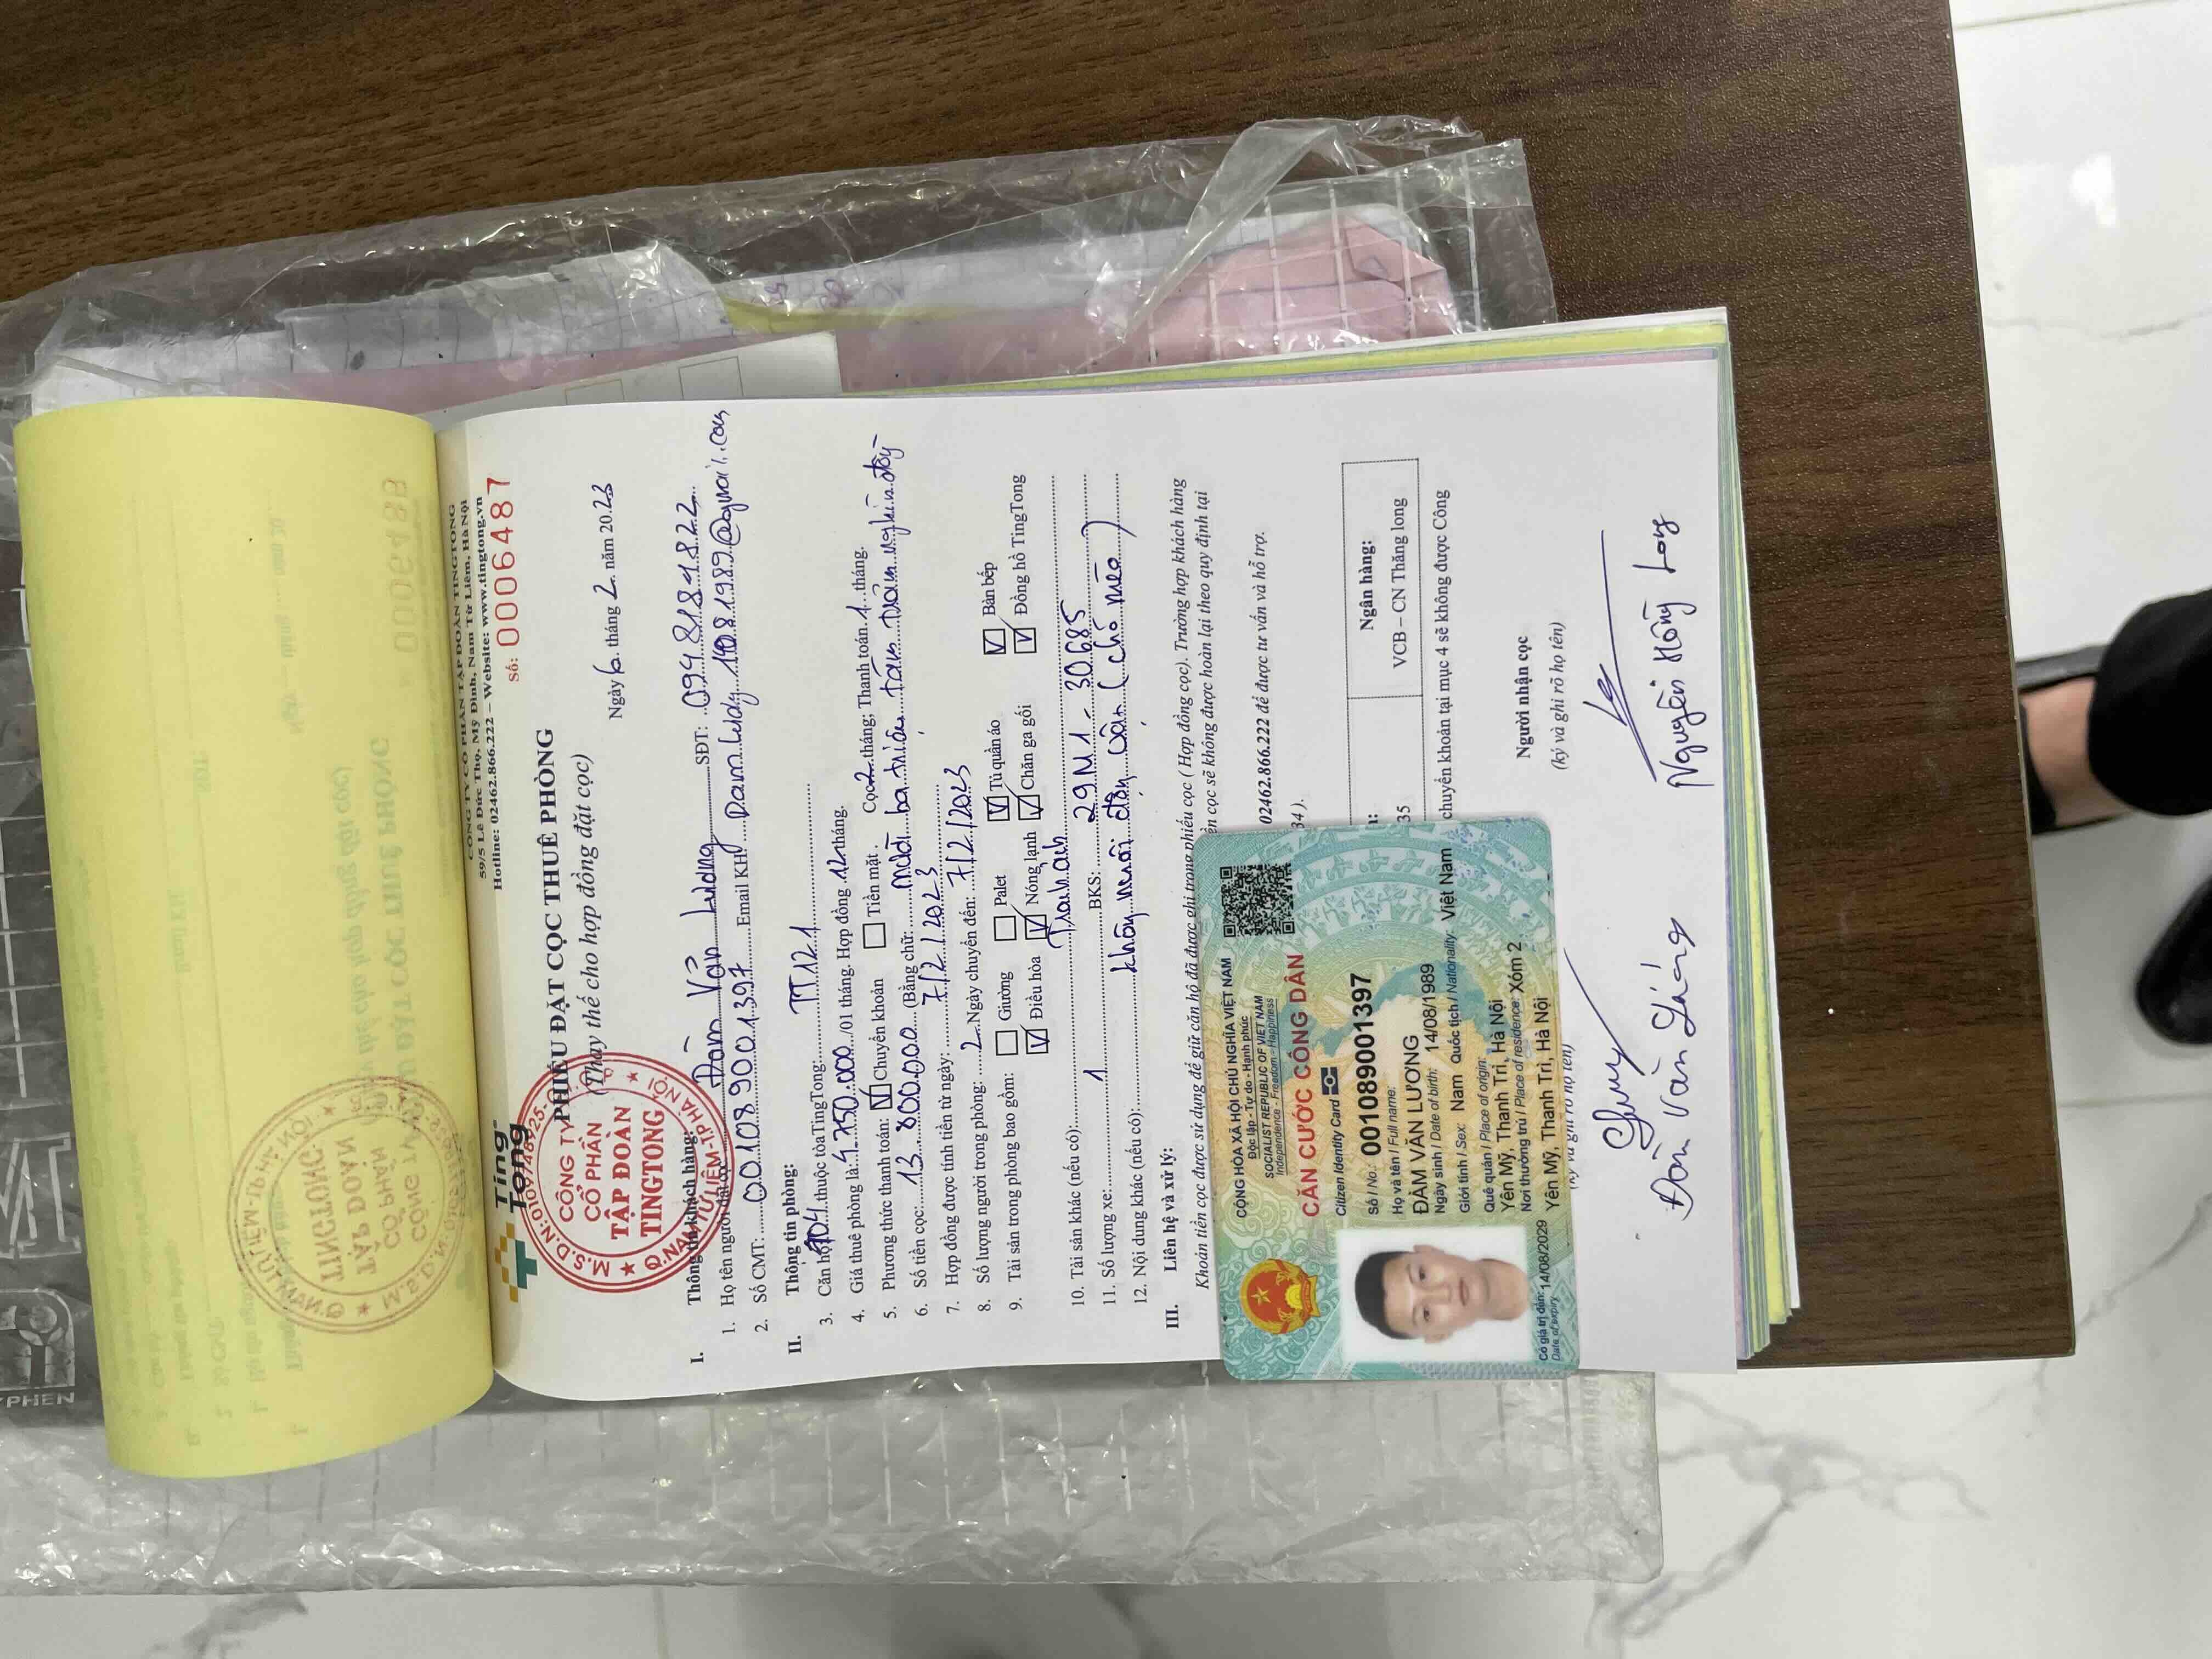 CÔNG TY CỔ PHẦN TẬP ĐOÀN TINGTONG
59/5 Lê Đức Thọ, Mỹ Đình, Nam Từ Liêm, Hà Nội
Hotline: 02462.866.222 – Website: www.tingtong.vn
Số: 0006487
Ting Tong
PHIẾU ĐẶT CỌC THUÊ PHÒNG
(Thay thế cho hợp đồng đặt cọc)
Ngày 6 tháng 2 năm 2023
M.S.D.N:
CÔNG TY
CỔ PHẦN
TẬP ĐOÀN
TINGTONG
Q.NAM TỪ LIÊM-TP HÀ NỘI
I. Thông tin khách hàng:
1. Họ tên người đặt cọc Đàm Văn Lương SĐT: 0948189822
2. Số CMT: 001089001397 Email KH:
II. Thông tin phòng:
3. Căn hộ 904 thuộc tòaTingTong: TT121
4. Giá thuê phòng là: 4.750.000 /01 tháng. Hợp đồng 12 tháng. Cọc 2 tháng; Thanh toán 1 tháng.
5. Phương thức thanh toán: V Chuyển khoản Tiền mặt.
6. Số tiền cọc: 13.800.000 (Bằng chữ: mười ba triệu tám trăm nghìn đồng
7. Hợp đồng được tính tiền từ ngày: 7/2/2023
8. Số lượng người trong phòng: 2 Ngày chuyển đến: 7/2/2023
9. Tài sản trong phòng bao gồm: Giường Palet V Tủ quần áo V Bàn bếp
V Điều hòa V Nóng lạnh V Chăn ga gối V Đồng hồ TingTong
10. Tài sản khác (nếu có):
11. Số lượng xe: 1 BKS: 29M1-30685
12. Nội dung khác (nếu có): không nuôi động vật (chó mèo)
III. Liên hệ và xử lý:
Khoản tiền cọc được sử dụng để giữ căn hộ đã được ghi trong phiếu cọc ( Hợp đồng cọc). Trường hợp khách hàng
ền cọc sẽ không được hoàn lại theo quy định tại
02462.866.222 để được tư vấn và hỗ trợ.
34).
Ngân hàng:
35
VCB – CN Thăng long
chuyển khoản tại mục 4 sẽ không được Công
Người nhận cọc
(ký và ghi rõ họ tên)
Nguyễn Hồng Long
CỘNG HÒA XÃ HỘI CHỦ NGHĨA VIỆT NAM
Độc lập - Tự do - Hạnh phúc
SOCIALIST REPUBLIC OF VIET NAM
Independence - Freedom - Happiness
CĂN CƯỚC CÔNG DÂN
Citizen Identity Card
Số / No.: 001089001397
Họ và tên / Full name:
ĐÀM VĂN LƯƠNG
Ngày sinh / Date of birth: 14/08/1989
Giới tính / Sex: Nam Quốc tịch / Nationality: Việt Nam
Quê quán / Place of origin:
Yên Mỹ, Thanh Trì, Hà Nội
Nơi thường trú / Place of residence: Xóm 2
Yên Mỹ, Thanh Trì, Hà Nội
Có giá trị đến: 14/08/2029
Date of expiry
(ký và ghi rõ họ tên)